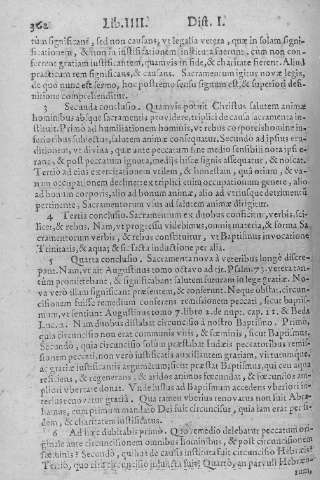 362 Lib. IIII. Dist. I.
tum significans, sed non causans, vt legalia vetera, quæ in solam significationem, & non in iustificationem instituta fuerunt, cum non conferrent gratiam iustificantem, quamvis in fide, & charitate fierent. Aliud
practicum rem significans, & causans. Sacramentum igitur novæ legis,
de quo nunc est sermo, hoc postremo sensu signum est, & superiori definitione comprehenditur.
3 Secunda conclusio. Quamvis potuit Christus salutem animæ
hominibus absque sacramentis providere, triplici de causa sacramenta instituit. Primo ad humiliationem hominis, vt rebus corporeis homine inferioribus subiectus, salutem animæ consequatur. Secundo ad ipsius eruditionem, vt divina, quæ ante peccatum sine medio sensibili nota ipsi erant, & post peccatum ignota, medijs hisce signis assequatur, & noscat.
Tertio ad eius exercitationem vtilem, & honestam, quâ otium, & vanam occupationem declinet:
ad bonum corporis, alio ad bonum animæ, alio ad vtriusque
pertinente, Sacramentorum vius ad salutem animæ dirigitur.
4 Tertia conclusio. Sacramentum ex duobus conficitur, verbis, scilicet, & rebus. Nam, vt progressu videbimus, omnis materia, & forma Sacramentorum verbis, & rebus constituitur, vt Baptismus invocatione
Trinitatis, & aqua; & sic facta inductione per alia.
5 Quarta conclusio. Sacramenta nova à veteribus longè
Nam, vt ait Augustinus tomo octavo ad tit. Psalm. 73. vetera tantùm promittebant, & significabant salutem futuram in lege gratiæ. Nova verò illam significant præsentem, & conferunt. Neque obstat, circuncisionem fuisse remedium conferens remissionem peccati, sicut baptismum, vt sentiunt Augustinus tomo 7. libro 2. de nupt. cap. 11. & Beda
Luc. 2. Nam duobus distabat circuncisio à nostro Baptismo. Primo,
quia circuncisio non erat communis viris, & fœminis, sicut Baptismus.
Secundo, quia circuncisio solum præstabat Iudæis peccatoribus remissionem peccati, non verò iustificatis auxiliantem gratiam, virtutumque,
ac gratiæ iustificantis augmentum, sicut præstat Baptismus, qui ceu aqua
reficiens, & regenerans, & aridos animos fœcundat, & fœcundos amplius vbertate donat. Vnde iustus ad Baptismum accedens vberiori interius renovatur gratiâ. Qua tamen vberius renovatus non fuit Abraham, cum primum mandato Dei fuit circuncisus, quia iam erat per fidem, & charitatem iustificatus.
6 Ad hæc dubitabis primo. Quo remedio delebatur peccatum originale ante circuncisionem omnibus hominibus, & post circuncisionem
fœminis? Secundo, quid hoc de causa instituta fuit circuncisio Hebræis?
Tertio, quo circuncisio iniuncta fuit? Quarto, an parvuli Hebræorum,